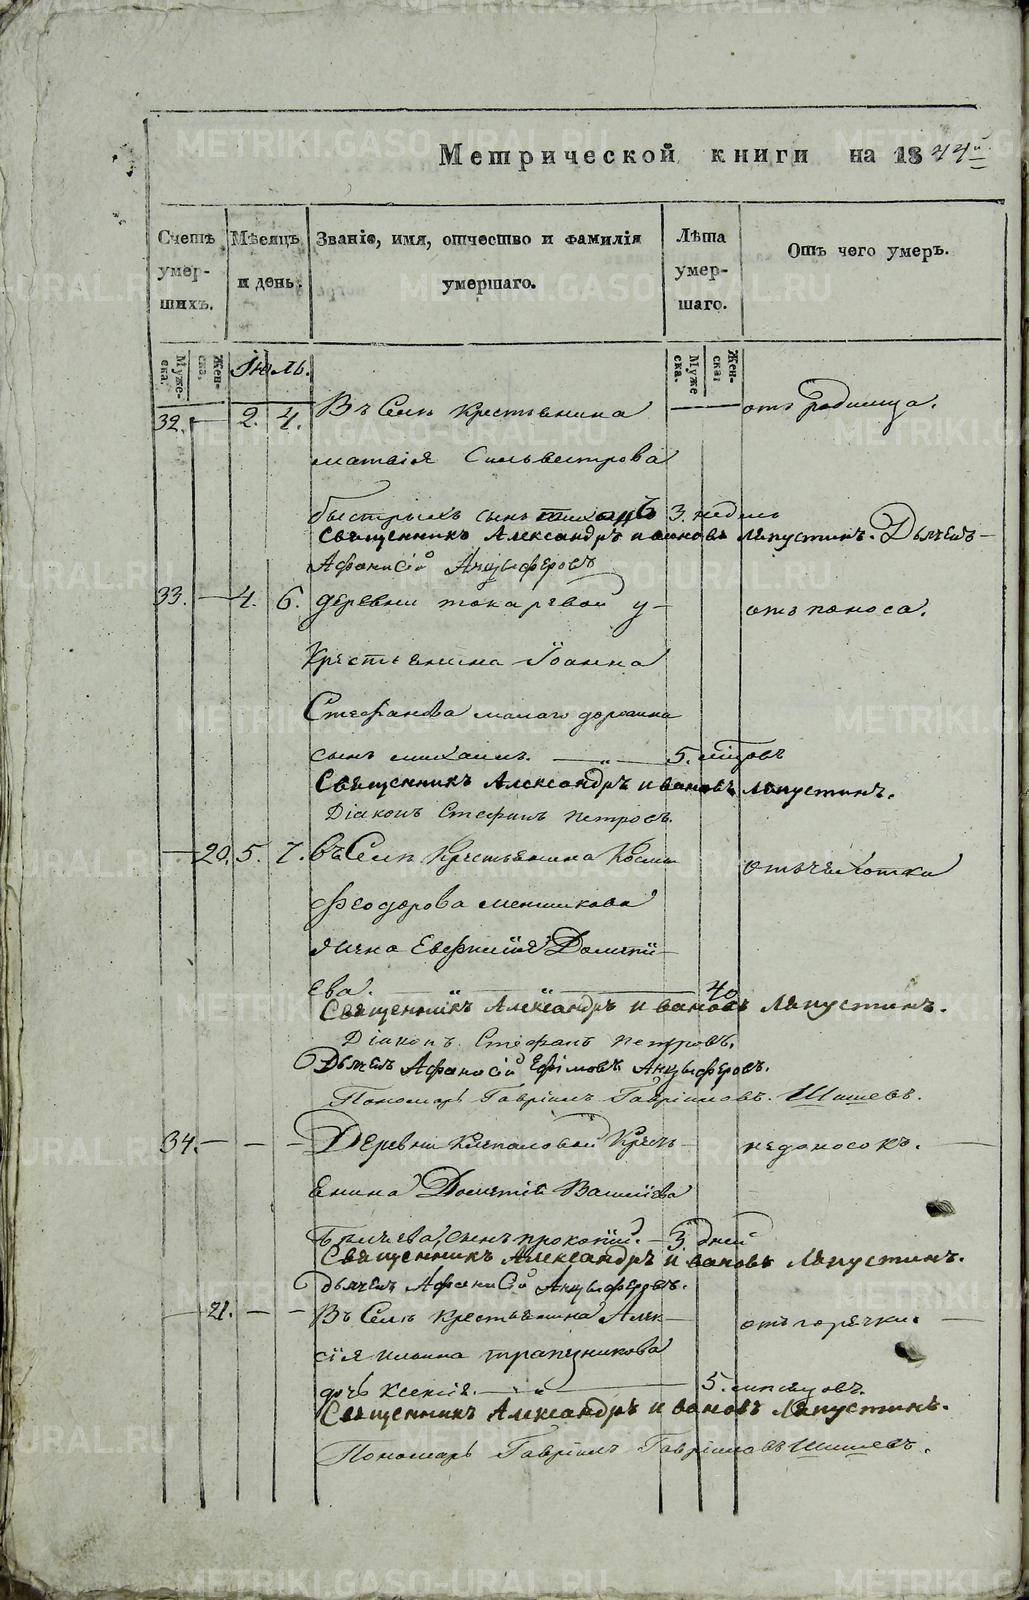 Метрической книги на 1844й
Счетъ умершихъ. Мѣсяцъ и день. Званіе, имя, отчество и фамилія умершаго. Лѣта умершаго. Отъ чего умеръ.
Мужеска. Женска. Мужеска. Женска.
Июль.
32. — 2. 4. Въ Селѣ крестьянина — отъ родимца.
матвія Сильвестрова
быстрыхъ сынъ 3. недель
Священникъ Александръ ивановъ Ляпустинъ. Дьячекъ —
Афанасій Анцыферовъ
33. — 4. 6. деревни токаревой у— отъ поноса.
Крестьянина Іоанна
Стефанова малаго дородина
сынъ михаилъ. — „ — 5. мѣсяцовъ
Священникъ Александръ ивановъ Ляпустинъ.
Діаконъ Стефанъ петровъ.
— 20. 5. 7. въ Селѣ Крестьянина Космы отъ чехотки
Феодорова меншикова
жена Евфимія Домети—
ева. — 40
Священникъ Александръ ивановъ Ляпустинъ.
Діаконъ Стефанъ петровъ.
Дьячекъ Афанасій Ефимовъ Анцыферовъ.
Пономарь Гавріилъ Гавріиловъ Шишевъ.
34. — — — Деревни Ключ Крест— недоносокъ. —
янина Дометія Васильева
сынъ прокопій. — 3. дней
Священникъ Александръ ивановъ Ляпустинъ.
дьячекъ Афанасій Анцыферовъ.
— 21. — — Въ Селѣ крестьянина Алек— отъ горячки. —
сія ильина трапезникова
дочь Ксенія. — „ — 5. мѣсяцовъ.
Священникъ Александръ ивановъ Ляпустинъ.
Пономарь Гавріилъ Гавріиловъ Шишевъ.
METRIKI.GASO-URAL.RU